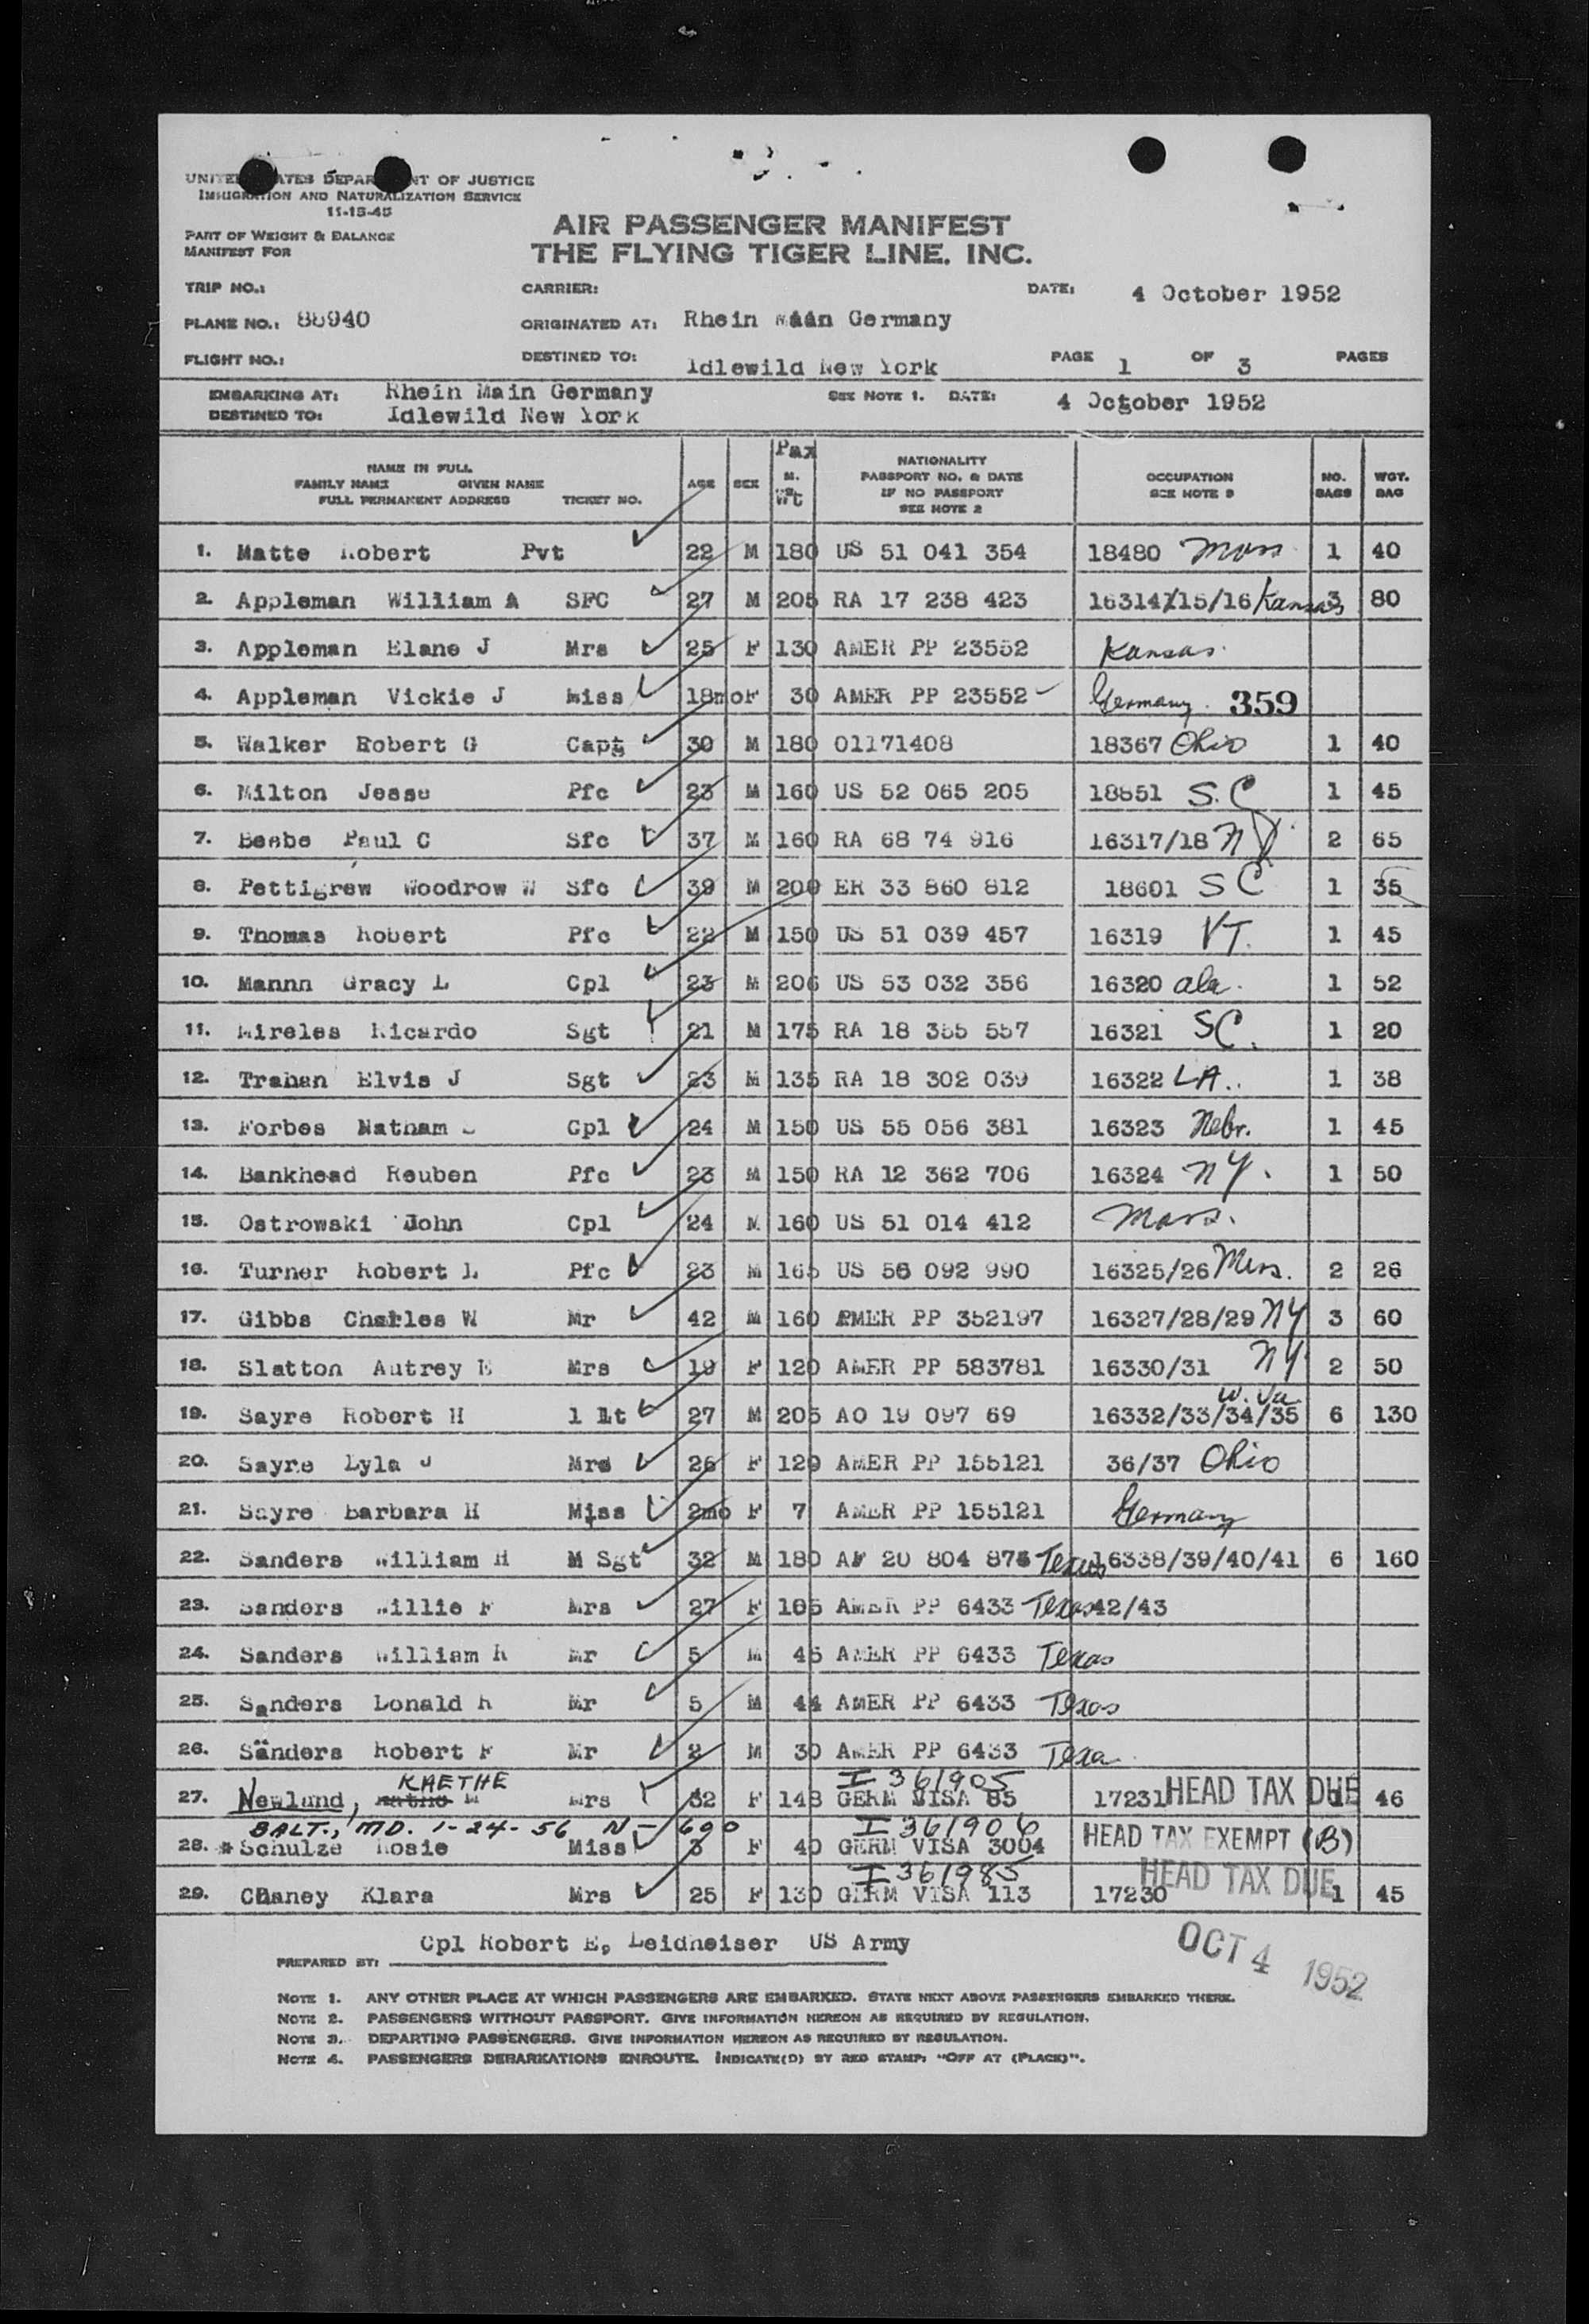 UNITED STATES DEPARTMENT OF JUSTICE
IMMIGRATION AND NATURALIZATION SERVICE
11-15-45
PART OF WEIGHT & BALANCE
MANIFEST FOR
AIR PASSENGER MANIFEST
THE FLYING TIGER LINE, INC.
TRIP NO.: CARRIER: DATE: 4 October 1952
PLANE NO.: 88940 ORIGINATED AT: Rhein Main Germany
FLIGHT NO.: DESTINED TO: Idlewild New York PAGE 1 OF 3 PAGES
EMBARKING AT: Rhein Main Germany SEE NOTE 1. DATE: 4 October 1952
DESTINED TO: Idlewild New York
NAME IN FULL
FAMILY NAME GIVEN NAME
FULL PERMANENT ADDRESS TICKET NO. AGE SEX Pax M. Wt NATIONALITY PASSPORT NO. & DATE IF NO PASSPORT SEE NOTE 2 OCCUPATION SEE NOTE 3 NO. BAGS WGT. BAG
1. Matte Robert Pvt 22 M 180 US 51 041 354 18480 Mass 1 40
2. Appleman William A SFC 27 M 205 RA 17 238 423 16314/15/16 Kansas 3 80
3. Appleman Elane J Mrs 25 F 130 AMER PP 23552 Kansas.
4. Appleman Vickie J Miss 18mo F 30 AMER PP 23552 Germany. 359
5. Walker Robert G Capt 30 M 180 01171408 18367 Ohio 1 40
6. Milton Jesse Pfc 23 M 160 US 52 065 205 18651 S.C 1 45
7. Beebe Paul C Sfc 37 M 160 RA 68 74 916 16317/18 NJ 2 65
8. Pettigrew Woodrow W Sfc 39 M 200 ER 33 860 812 18601 SC 1 35
9. Thomas Robert Pfc 22 M 150 US 51 039 457 16319 VT. 1 45
10. Mannn Gracy L Cpl 23 M 206 US 53 032 356 16320 Ala. 1 52
11. Mireles Ricardo Sgt 21 M 175 RA 18 355 557 16321 SC. 1 20
12. Trahan Elvis J Sgt 23 M 135 RA 18 302 039 16322 LA.. 1 38
13. Forbes Natham Cpl 24 M 150 US 55 056 381 16323 Nebr. 1 45
14. Bankhead Reuben Pfc 23 M 150 RA 12 362 706 16324 NY. 1 50
15. Ostrowski John Cpl 24 M 160 US 51 014 412 Mass.
16. Turner Robert L Pfc 23 M 165 US 56 092 990 16325/26 Miss. 2 26
17. Gibbs Charles W Mr 42 M 160 AMER PP 352197 16327/28/29 NY 3 60
18. Slatton Autrey E Mrs 19 F 120 AMER PP 583781 16330/31 NY 2 50
19. Sayre Robert H 1 Lt 27 M 205 AO 19 097 69 16332/33/34/35 W. Va. 6 130
20. Sayre Lyla J Mrs 26 F 129 AMER PP 155121 36/37 Ohio
21. Sayre Barbara H Miss 2mo F 7 AMER PP 155121 Germany
22. Sanders William H M Sgt 32 M 180 AF 20 804 875 Texas 16338/39/40/41 6 160
23. Sanders Willie F Mrs 27 F 105 AMER PP 6433 Texas 42/43
24. Sanders William R Mr 5 M 45 AMER PP 6433 Texas
25. Sanders Donald R Mr 5 M 44 AMER PP 6433 Texas
26. Sanders Robert F Mr 2 M 30 AMER PP 6433 Texa
KAETHE I 361905
27. Newland, M Mrs 32 F 148 GERM VISA 85 17231 HEAD TAX DUE 1 46
BALT., MD. 1-24-56 N-690 I 361906
28. * Schulze Rosie Miss 3 F 40 GERM VISA 3004 HEAD TAX EXEMPT (B)
I 361985
29. Chaney Klara Mrs 25 F 130 GERM VISA 113 17230 HEAD TAX DUE 1 45
PREPARED BY: Cpl Robert E, Leidheiser US Army
OCT 4 1952
NOTE 1. ANY OTHER PLACE AT WHICH PASSENGERS ARE EMBARKED. STATE NEXT ABOVE PASSENGERS EMBARKED THERE.
NOTE 2. PASSENGERS WITHOUT PASSPORT. GIVE INFORMATION HEREON AS REQUIRED BY REGULATION.
NOTE 3. DEPARTING PASSENGERS. GIVE INFORMATION HEREON AS REQUIRED BY REGULATION.
NOTE 4. PASSENGERS DEBARKATIONS ENROUTE. INDICATE(D) BY RED STAMP: "OFF AT (PLACE)".